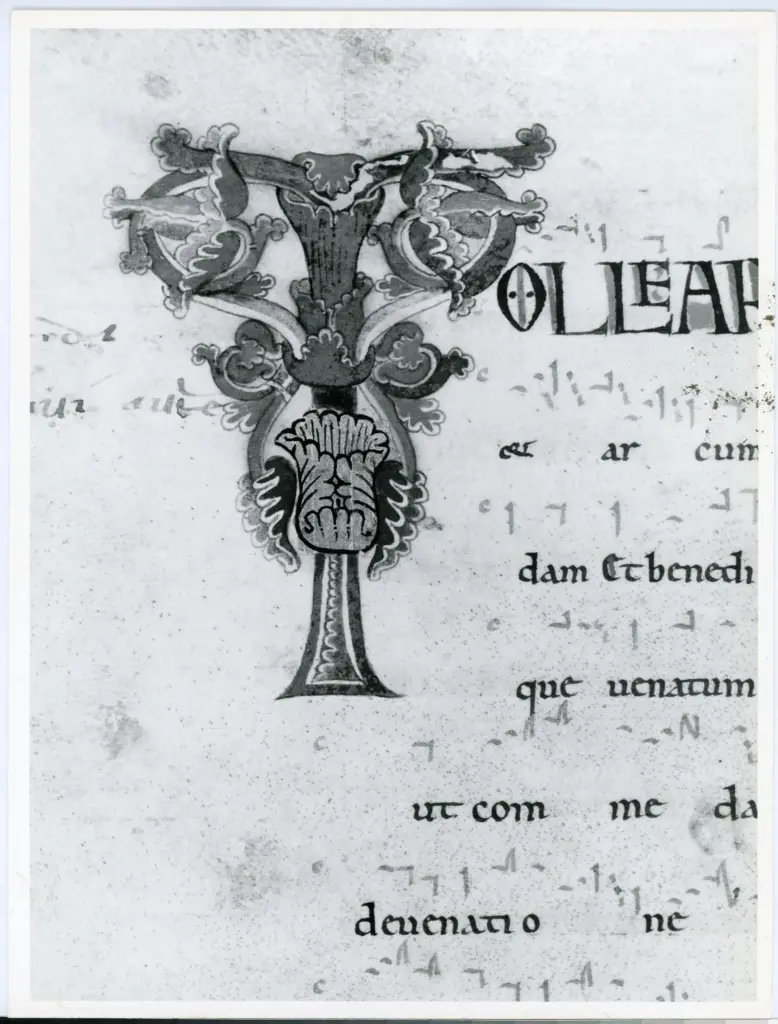 TOLLE AR
& ar cum
dam Et benedi
que uenatum
ut com me da
deuenati o ne